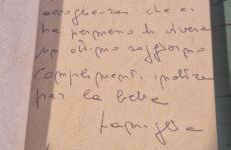 accoglienza che ci
ha permesso di vivere
un ottimo soggiorno
complimenti inoltre
per la bella
famiglia